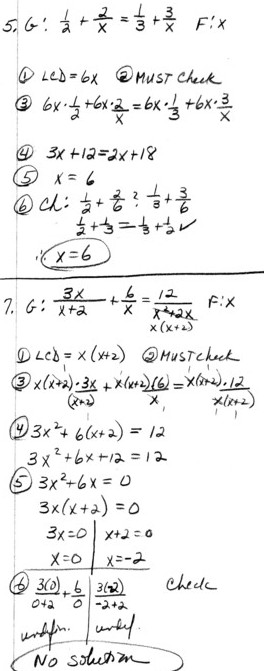 5. G: 1/2 + 2/x = 1/3 + 3/x F: x
① LCD = 6x ② MUST Check
③ 6x · 1/2 + 6x · 2/x = 6x · 1/3 + 6x · 3/x
④ 3x + 12 = 2x + 18
⑤ x = 6
⑥ Ch: 1/2 + 2/6 ? 1/3 + 3/6
1/2 + 1/3 = 1/3 + 1/2 ✓
∴ x = 6
7. G: 3x/(x+2) + 6/x = 12/(x²+2x) F: x
x(x+2)
① LCD = x(x+2) ② MUST check
③ x(x+2) · 3x/(x+2) + x(x+2)(6)/x = x(x+2) · 12/x(x+2)
④ 3x² + 6(x+2) = 12
3x² + 6x + 12 = 12
⑤ 3x² + 6x = 0
3x(x+2) = 0
3x = 0 | x+2 = 0
x = 0 | x = -2
⑥ 3(0)/0+2 + 6/0 | 3(-2)/-2+2 Check
undefin. | undef.
No solution